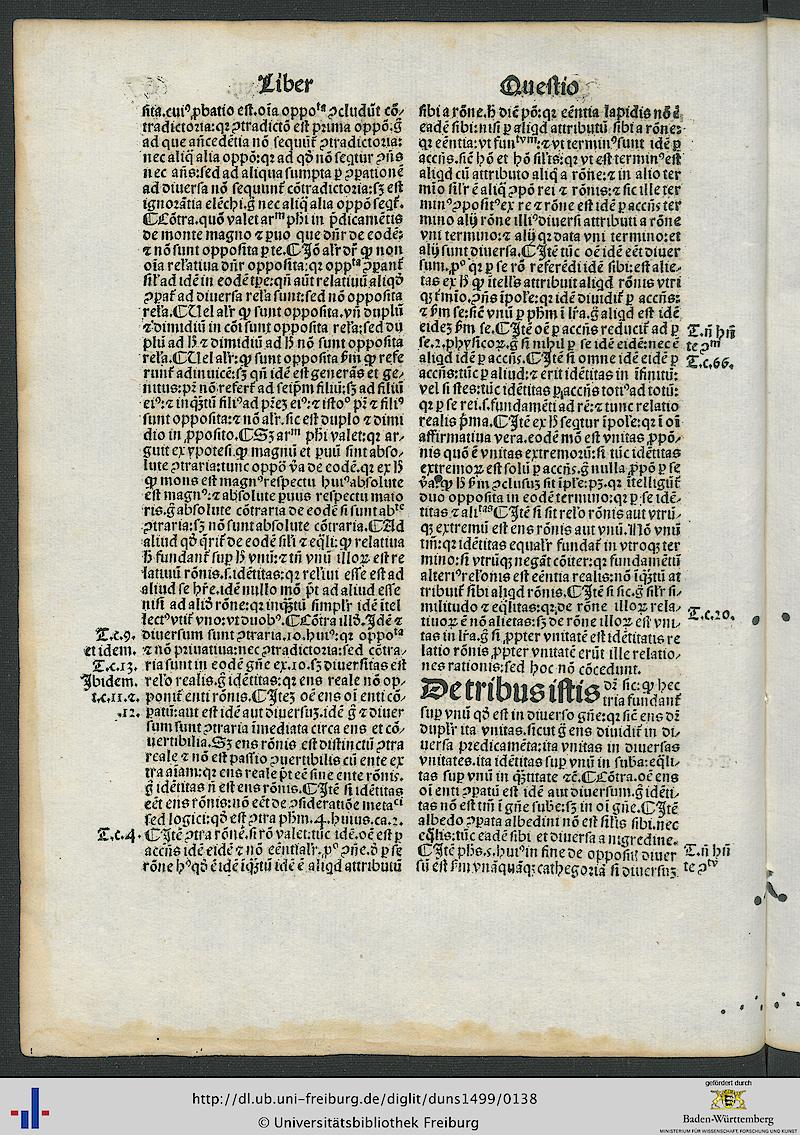 Liber
sita.cuiꝰ ꝓbatio est.oīa oppoᵗᵃ ↄcludūt cō-
tradictoria:qꝛ ↄtradictō est prima oppō.g̃
ad que an̄cedētia nō sequūt̃ ↄtradictoria:
nec aliq̄ alia oppō:qꝛ ad qd̄ nō seqtur ↄn̄s
nec an̄s:sed ad aliqua sumpta ꝑ ↄꝑationē
ad diuersa nō sequunt̃ cōtradictoria:sꝫ est
ignorātia elēchi.g̃ nec aliq̄ alia oppō seqt̃.
¶Cōtra.quō valet arᵐ ph̄i in p̄dicamētis
de monte magno ⁊ ꝑuo que dn̄r de eodē:
⁊ nō sunt opposita ꝑ te.¶Iō alr̄ dr̄ ꝙ non
oīa relatiua dn̄r opposita:qꝛ oppᵗᵃ ↄꝑant̃
sil̄ ad idē in eodē tꝑe:qn̄ aūt relatiuū aliqd̄
ↄꝑat̃ ad diuersa rel̄a sunt:sed nō opposita
rel̄a.¶Uel alr̄ ꝙ sunt opposita.vn̄ duplū
⁊ dimidiū in cōi sunt opposita rel̄a:sed du
plū ad ħ ⁊ dimidiū ad ħ nō sunt opposita
rel̄a.¶Uel alr̄:ꝙ sunt opposita ẜm ꝙ refe
runt̃ adinuicē:sꝫ qn̄ idē est generās et ge-
nitus:pr̄ nō refert̃ ad seip̄m filiū:sꝫ ad filiū
eiꝰ:⁊ inqꝫtū filiꝰ ad pr̄eꝫ eiꝰ:⁊ istoꝰ pr̄ ⁊ filiꝰ
sunt opposita:⁊ nō alr̄.sic est duplo ⁊ dimi
dio in ꝓposito.¶Sꝫ arᵐ ph̄i valet:qꝛ ar-
guit ex ypotesi.ꝙ magnū et puū sunt abso-
lute ↄtraria:tunc oppōr̄ va de eodē.qꝛ ex ħ
ꝙ mons est magnꝰ respectu huiꝰ absolute
est magnꝰ:⁊ absolute ꝑuus respectu maio
ris.g̃ absolute cōtraria de eodē si sunt abᵗᵉ
ↄtraria:sꝫ nō sunt absolute cōtraria.¶Ad
aliud qd̄ q̄rit̃ de eodē sil̄i ⁊ eq̄li:ꝙ relatiua
ħ fundant̃ suꝑ ħ vnū:⁊ tn̄ vnū illoꝝ est re
latiuū rōnis.s.idētitas:qꝛ rel̄iui esse est ad
aliud se hr̄e.idē nullo mō pōt ad aliud esse
nisi ad aliā rōne:qꝛ inqꝫtū simplr̄ idē itel
lectꝰ vtit̃ vno:vt duobꝰ.¶Cōtra illd̄.Idē ⁊
diuersum sunt ↄtraria.10.huiꝰ:qꝛ oppoᵗᵃ
⁊ nō priuatiua:nec ↄtradictoria:sed cōtra-
ria sunt in eodē gn̄e ex.10.sꝫ diuersitas est
rel̄o realis.g̃ idētitas:qꝛ ens reale nō op-
ponit̃ enti rōnis.¶Iteꝫ oē ens oī enti cō-
ꝑatū:aut est idē aut diuersuꝫ.idē g̃ ⁊ diuer
sum sunt ↄtraria īmediata circa ens et cō-
uertibilia.Sꝫ ens rōnis est distinctū ↄtra
reale ⁊ nō est passio ↄuertibilis cū ente ex
tra aīam:qꝛ ens reale pōt eē sine ente rōnis.
g̃ idētitas n̄ est ens rōnis.¶Itē si idētitas
eēt ens rōnis:nō eēt de ↄsideratiōe metaᶜⁱ
sed logici:qd̄ est ↄtra phm̄.4.huius.ca.2.
¶Itē ↄtra rōnē.si rō valet:tūc idē.oē est ꝑ
accn̄s idē eidē ⁊ nō eēntialr̄.ꝓꝰ ↄn̄e.ō ꝑ se
rōne hꝰ qd̄ ē idē iqꝫtū idē ē aliqd attributū
T.c.9.
et idem.
T.c.13.
Ibidem.
t.c.11.⁊.
.12.
T.c.4.
Questio
sibi a rōne.ħ diē pō:qꝛ eēntia lapidis nō ē
eadē sibi:nisi ꝑ aliqd attributū sibi a rōne:
qꝛ eēntia:vt funᵗᵘᵐ:⁊ vt terminꝰ sunt idē ꝑ
accn̄s.siē hō et hō sil̄is:qꝛ vt est terminꝰ est
aliqd cū attributo aliq̄ a rōne:⁊ in alio ter
mīo sil̄r ē aliq̄ ↄpō rei ⁊ rōnis:⁊ sic ille ter
minꝰ ↄpositꝰ ex re ⁊ rōne est idē ꝑ accn̄s ter
mino alij rōne illiꝰ diuersi attributi a rōne
vni termino:⁊ alij qꝛ data vni termino:et
alij sunt diuersa.¶Itē tūc oē idē eēt diuer
sum.pꝰ qꝛ ꝑ se rō referēdi idē sibi:est alie-
tas ex ħ ꝙ itell̄s attribuit aliqd rōnis vtri
qꝫ t̄mīo.ↄn̄s īpol̄e:qꝛ idē diuidit̃ ꝑ accn̄s:
⁊ ẜm se:siē vnū ꝑ ph̄m ī lr̄a.g̃ aliqd est idē
eideꝫ ẜm se.¶Itē oē ꝑ accn̄s reducit̃ ad ꝑ
se.2.physicoꝝ.g̃ si nihil ꝑ se idē eidē:nec ē
aliqd idē ꝑ accn̄s.¶Itē si omne idē eidē ꝑ
accn̄s:tūc ꝑ aliud:⁊ erit idētitas in īfinitū:
vel si stes:tūc idētitas ꝑ accn̄s totiꝰ ad totū:
qꝛ ꝑ se rei.s.fundamēti ad rē:⁊ tunc relatio
realis ṗma.¶Itē ex ħ seqtur īpol̄e:qꝛ ī oī
affirmatiua vera.eodē mō est vnitas ꝓpō-
nis quō ē vnitas extremorū:si tūc idētitas
extremoꝝ est solū ꝑ accn̄s.g̃ nulla ꝓpō ꝑ se
va.ꝙ ħ ẜm ↄclusuꝫ sit īpl̄e:pꝫ.qꝛ itelligūt̃
duo opposita in eodē termino:qꝛ ꝑ se idē-
titas ⁊ aliᵗᵃˢ ¶Itē si sit rel̄o rōnis aut vtrū-
qꝫ extremū est ens rōnis aut vnū.Nō vnū
tm̄:qꝛ idētitas equalr̄ fundat̃ in vtroqꝫ ter
mino:si vtrūqꝫ negāt cōiter:qꝛ fundamētū
alteriꝰ rel̄onis est eēntia realis:nō iqꝫtū at
tribuit̃ sibi aliqd rōnis.¶Itē si sic.g̃ sil̄r si-
militudo ⁊ eq̄litas:qꝛ de rōne illoꝝ rela-
tiuoꝝ ē nō alietas:sꝫ de rōne illoꝝ est vni
tas in lr̄a.g̃ si ꝓpter vnitatē est idētitatis re
latio rōnis ꝓpter vnitatē erūt ille relatio-
nes rationis:sed hoc nō cōcedunt.
De tribus istis dr̄ sic:ꝙ hec
tria fundant̃
suꝑ vnū qd̄ est in diuerso gn̄e:qꝛ siē ens dr̄
duplr̄ ita vnitas.sicut g̃ ens diuidit̃ in di-
uersa predicamēta:ita vnitas in diuersas
vnitates.ita idētitas suꝑ vnū in suba:eq̄li-
tas suꝑ vnū in qꝫtitate ⁊c̄.¶Cōtra.oē ens
oī enti ↄꝑatū est idē aut diuersum.g̃ idēti-
tas nō est tm̄ ī gn̄e sube:sꝫ in oī gn̄e.¶Itē
albedo ↄꝑata albedini nō est sil̄is sibi.nec
eq̄lis:tūc eadē sibi et diuersa a nigredine.
¶Itē ph̄s.5.huiꝰ in fine de oppositꝭ diuer
sū est ẜm vnāquāqꝫ cathegoriā si diuersuꝫ
T.ñ hñ
te ↄᵐ
T.c.66.
T.c.20.
T.ñ hñ
te ↄᵗᵘ
http://dl.ub.uni-freiburg.de/diglit/duns1499/0138
© Universitätsbibliothek Freiburg
gefördert durch
Baden-Württemberg
MINISTERIUM FÜR WISSENSCHAFT, FORSCHUNG UND KUNST